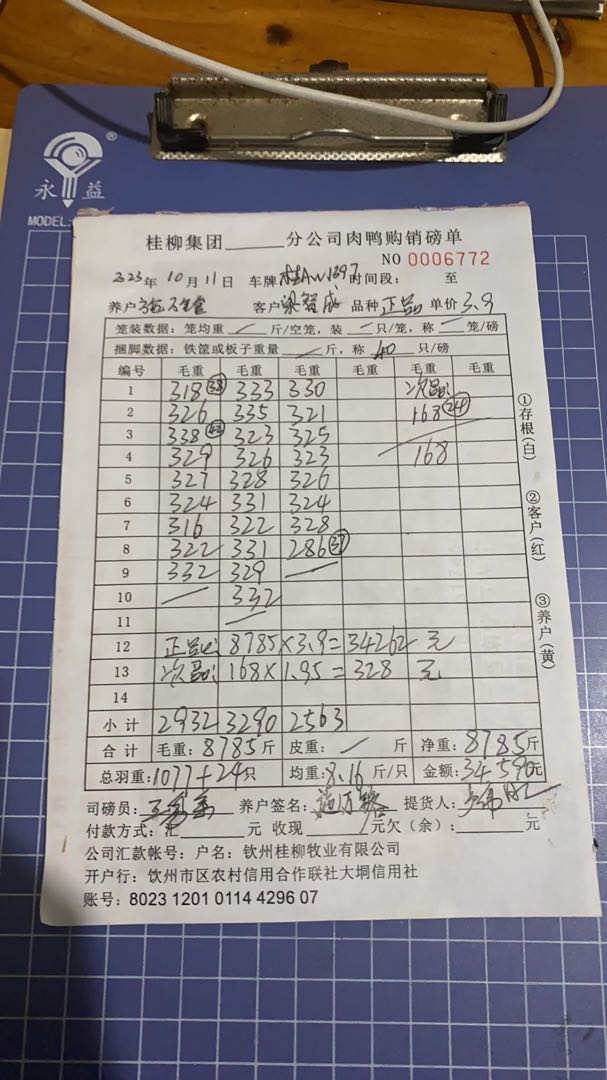 永益
®
MODEL:
桂柳集团______分公司肉鸭购销磅单
NO 0006772
2023年10月11日 车牌 桂AW1397 时间段: 至
养户 客户 梁智成 品种 正品 单价 3.9
笼装数据: 笼均重 / 斤/空笼, 装 / 只/笼, 称 / 笼/磅
捆脚数据: 铁筐或板子重量 / 斤, 称 40 只/磅
编号 毛重 毛重 毛重 毛重 毛重 毛重
1 318 (38) 333 330 次品:
2 326 335 321 168 (24)
3 338 323 325
4 329 326 323 168
5 327 328 326
6 324 331 324
7 316 322 328
8 322 331 286 (37) 
9 332 329 —
10 — 332
11 —
12 正品: 8785×3.9=34262 元
13 次品: 168×1.95=328 元
14
小计 2932 3290 2563
合计 毛重: 8785斤 皮重: / 斤 净重: 8785斤
总羽重: 1077+24只 均重: 8.16 斤/只 金额: 34590元
司磅员: 养户签名: 提货人:
付款方式: 元 收现 / 元欠(余): 元
公司汇款帐号: 户名: 钦州桂柳牧业有限公司
开户行: 钦州市区农村信用合作联社大垌信用社
账号: 8023 1201 0114 4296 07
①存根(白)
②客户(红)
③养户(黄)